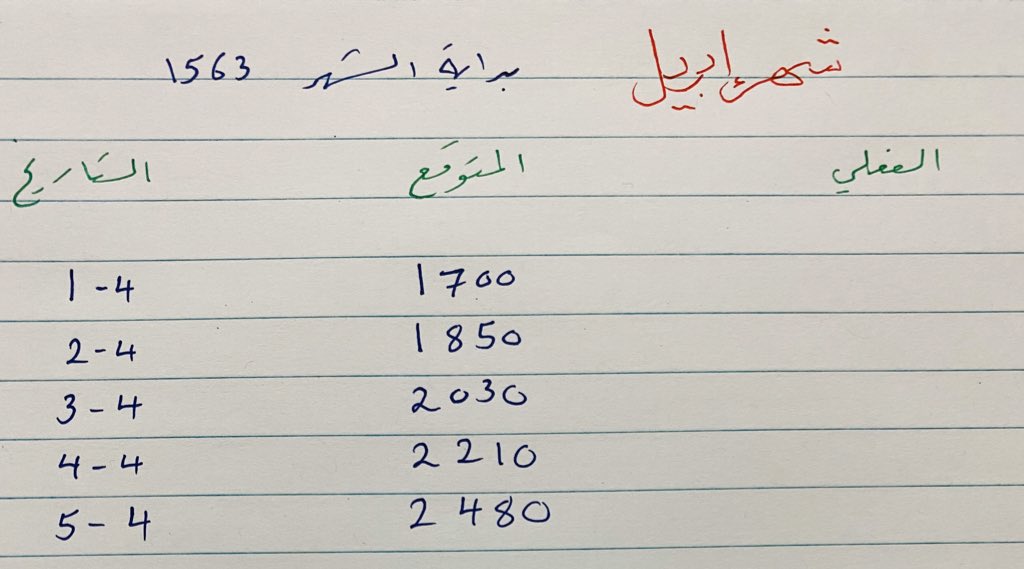 شهر إبريل بداية الشهر 1563
الفعلي المتوقع التاريخ
1-4 1700
2-4 1850
3-4 2030
4-4 2210
5-4 2480